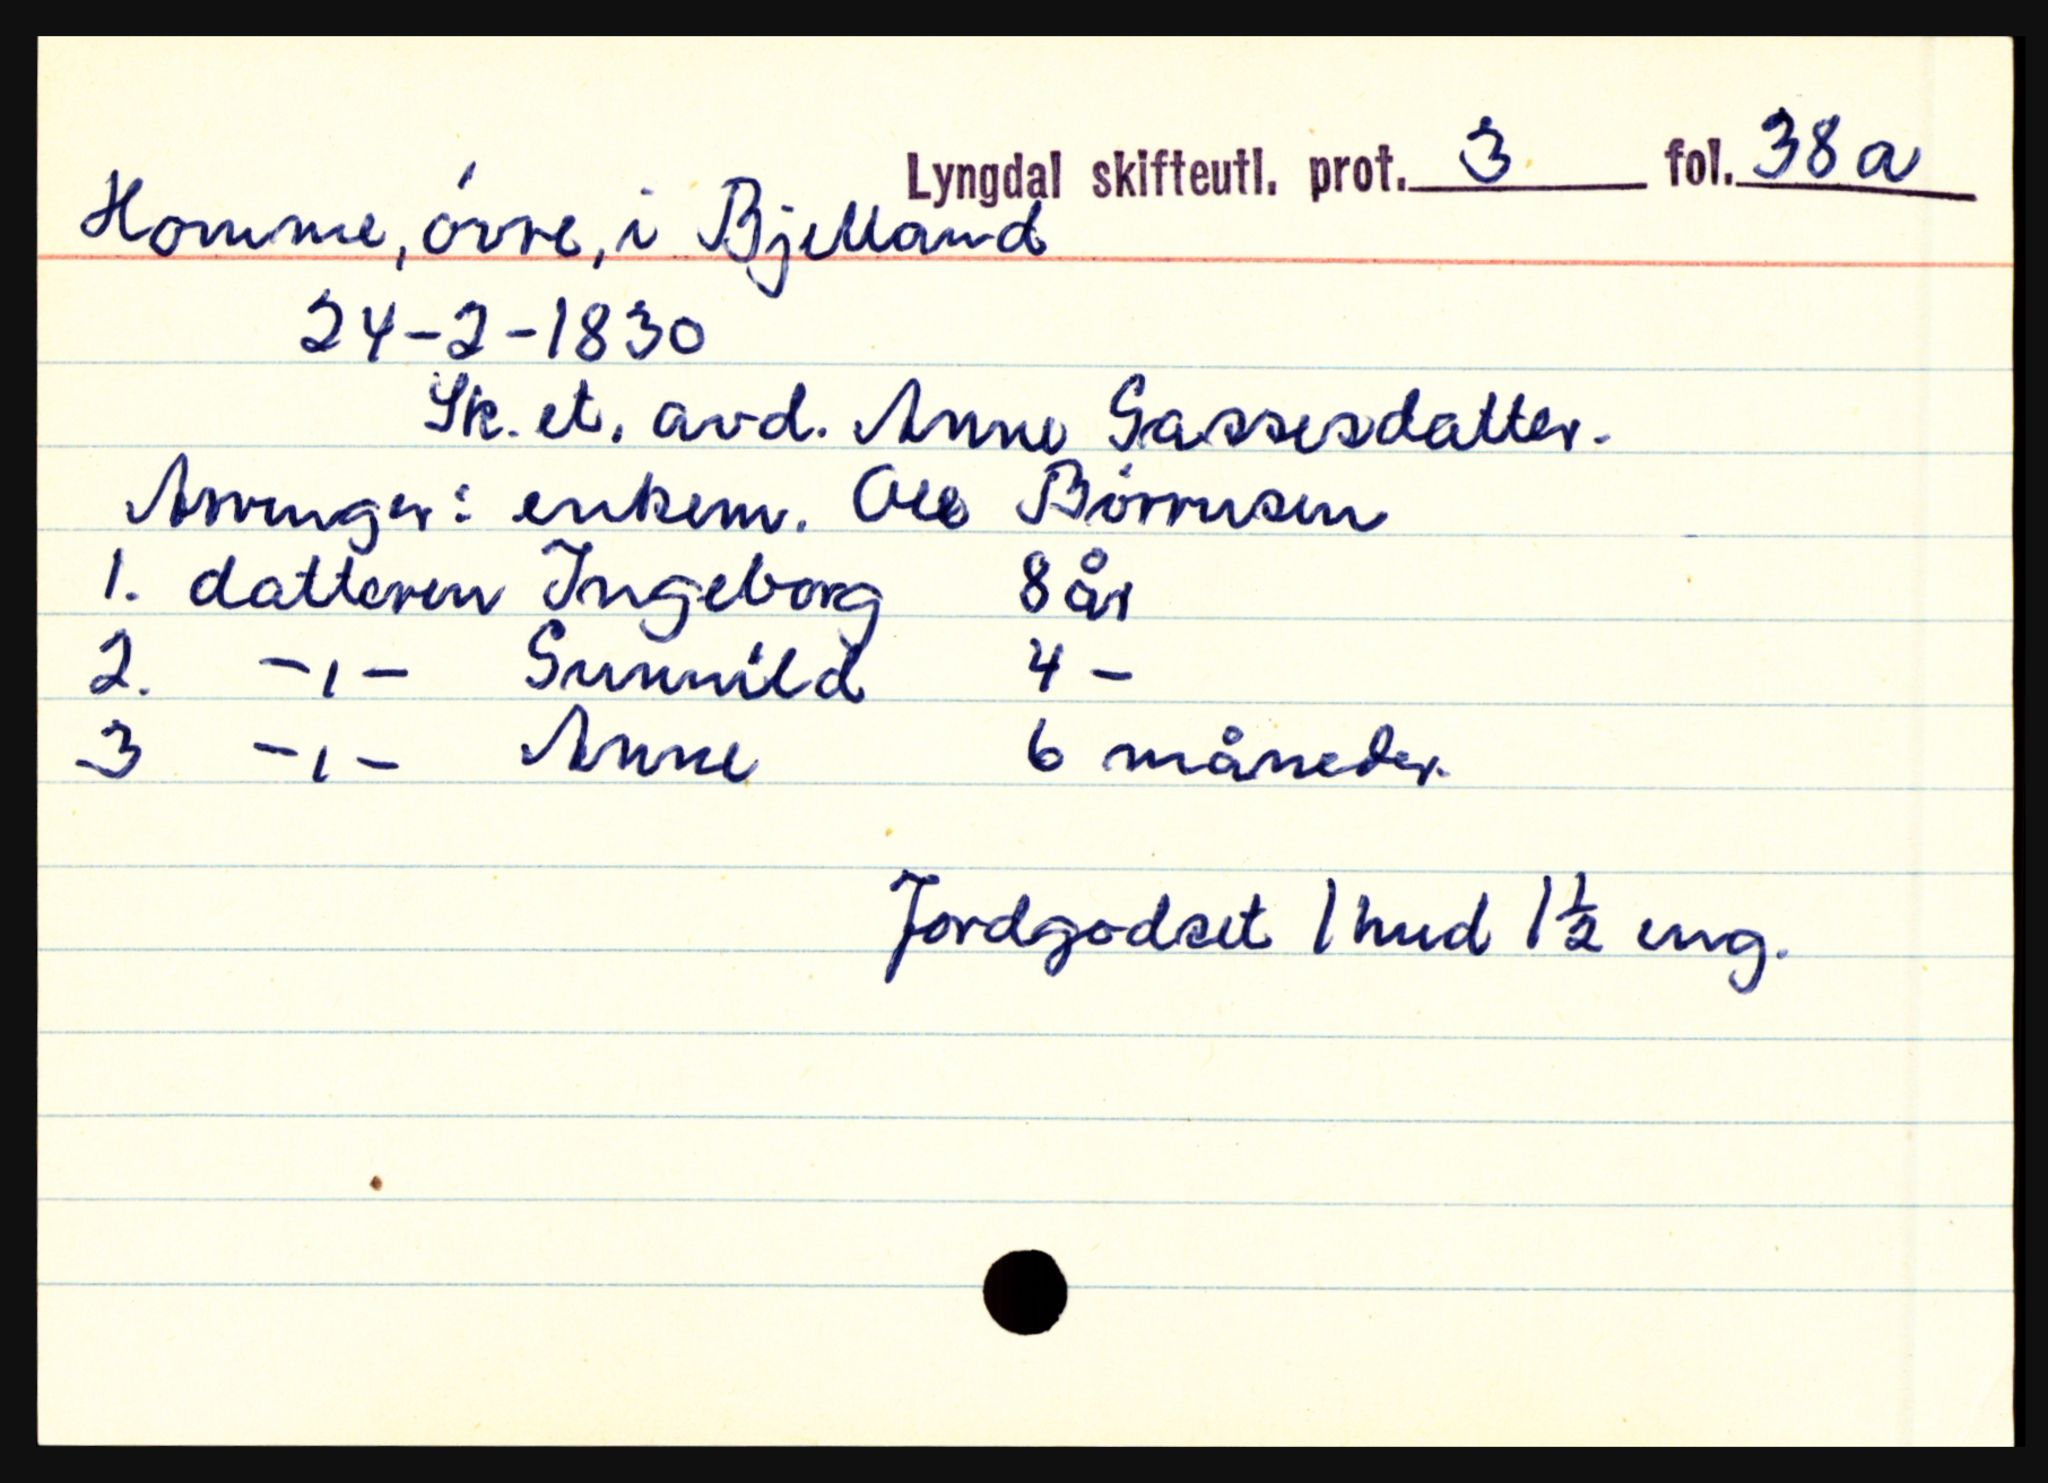 Lyngdal skifteutl. prot. 3 fol. 38a
Homme, óvre, i Bjelland
24-2-1830
Sk. et. avd. Anne Gassesdatter.
Arvinger: enkem. Ole Børresen
1. datteren Ingeborg 8 år
2. -ı- Gunnild 4 -
3 -ı- Anne 6 måneder.
Jordgodset 1 hud 1½ eng.